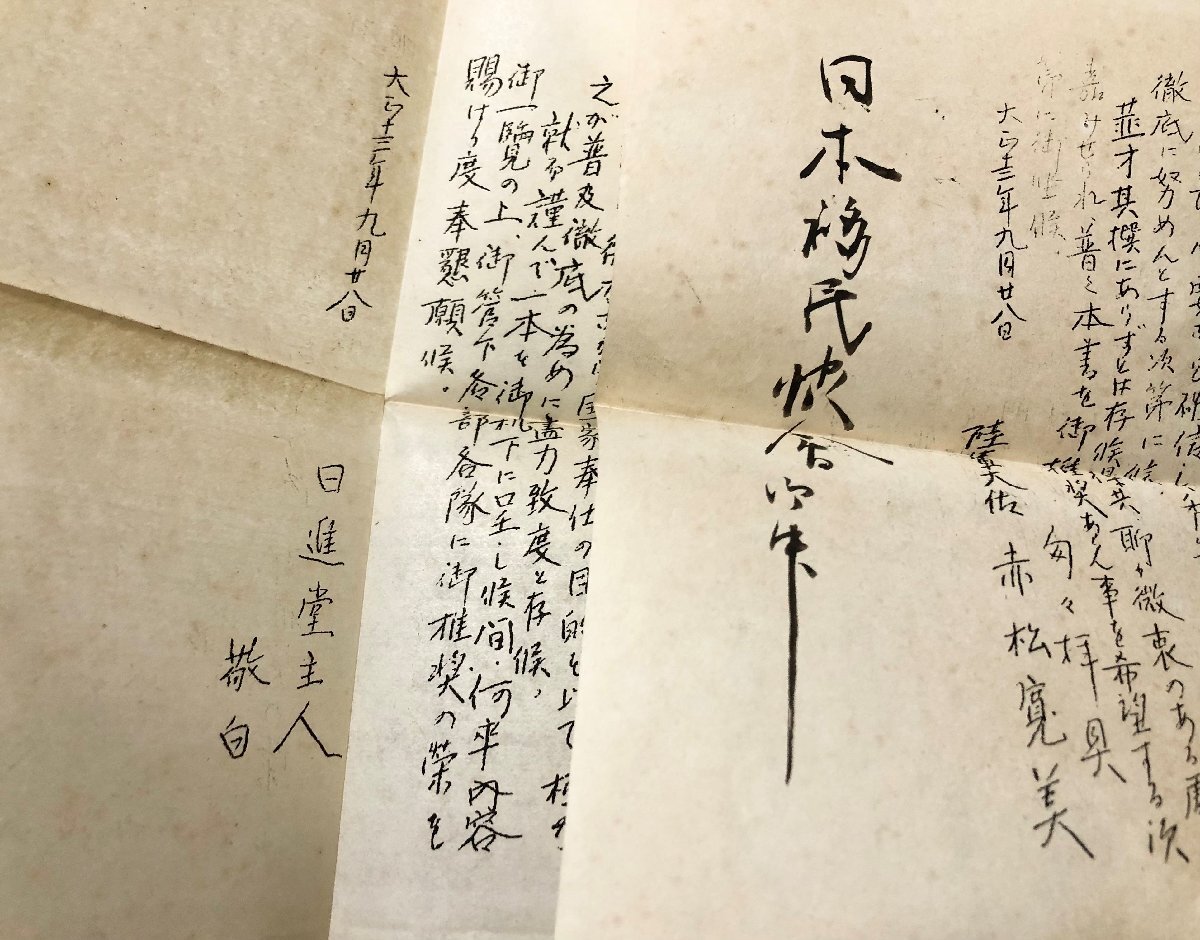 徹底に努めんとする次第に候
菲才其撰にあらずとは存候得共聊か微衷のある處
嘉みせられ普く本書を御推奨あらん事を希望する次
第に御座候
匆々拝具
大正十三年九月廿八日
陸軍大佐 赤松寛美
日本移民協会御中
之が普及徹底の為めに盡力致度と存候、
就ては謹んで一本を御机下に呈し候間・何卒内容
御一覧の上、御管下各部各隊に御推奨の榮を
賜け度奉懇願候。
大正十三年九月廿八日
日進堂主人
敬白